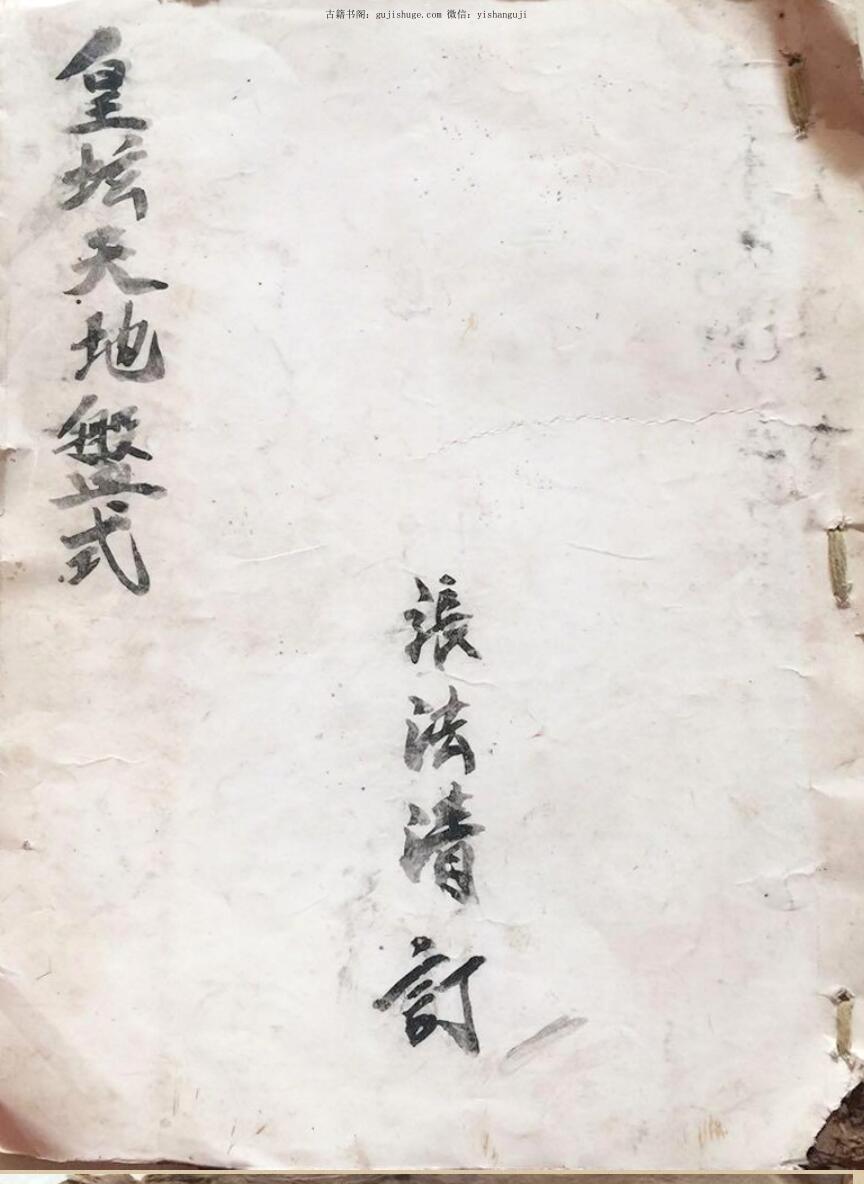 古籍书阁：gujishuge.com 微信：yishanguji
皇坛天地盤式
張法清訂